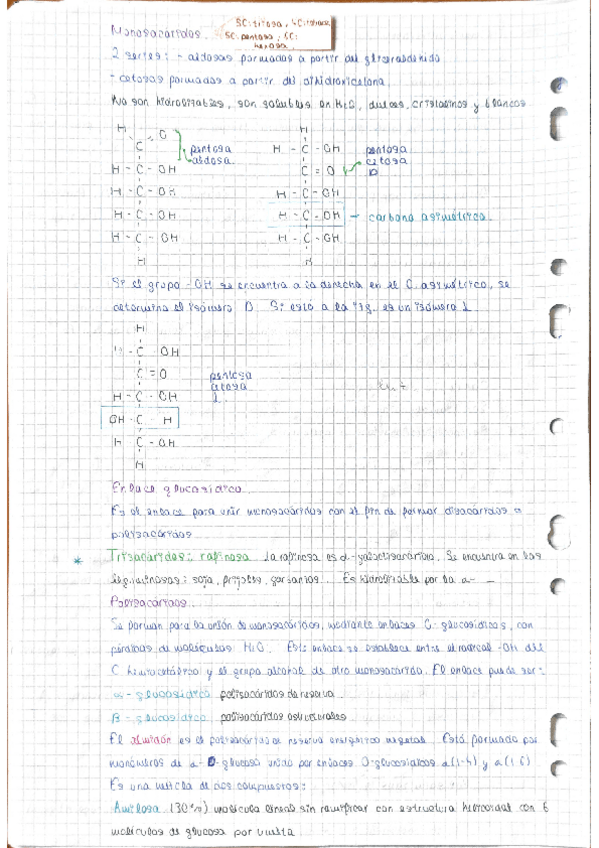 Monosacáridos.
3C: triosa, 4C: tetrosa
5C: pentosa, 6C:
hexosa
2 series: - aldosas formadas a partir del gliceraldehido
- cetosas formadas a partir del dihidroxicetona.
No son hidrolizables, son solubles en H2O, dulces, cristalinos y blancos
H O
C
pentosa
aldosa
H - C - OH
H - C - OH
H - C - OH
H - C - OH
H
H
H - C - OH
C = O
pentosa
cetosa
D
H - C - OH
H - C - OH - carbono asimétrico
H - C - OH
H
Si el grupo -OH se encuentra a la derecha en el C asimétrico, se
determina el isómero D. Si está a la izq. es un isómero L.
H
H - C - OH
C = O
pentosa
cetosa
L
H - C - OH
OH - C - H
H - C - OH
H
Enlace glucosídico
Es el enlace para unir monosacáridos con el fin de formar disacáridos o
polisacáridos
* Trisacáridos: rafinosa la rafinosa es α-galactosacárido. Se encuentra en las
leguminosas: soja, frijoles, garbanzos... Es hidrolizable por la α-
Polisacáridos
Se forman por la unión de monosacáridos, mediante enlaces O-glucosídicos, con
pérdidas de moléculas H2O. Este enlace se establece entre el radical -OH del
C hemiacetálico y el grupo alcohol de otro monosacárido. El enlace puede ser:
α-glucosídico polisacáridos de reserva
B-glucosídico polisacáridos estructurales
El almidón es el polisacárido de reserva energética vegetal. Está formado por
monómeros de α-D-glucosa unido por enlaces O-glucosídicos α(1-4) y α(1-6)
Es una mezcla de dos compuestos:
Amilosa (30%) molécula lineal sin ramificar con estructura helicoidal con 6
moléculas de glucosa por vuelta